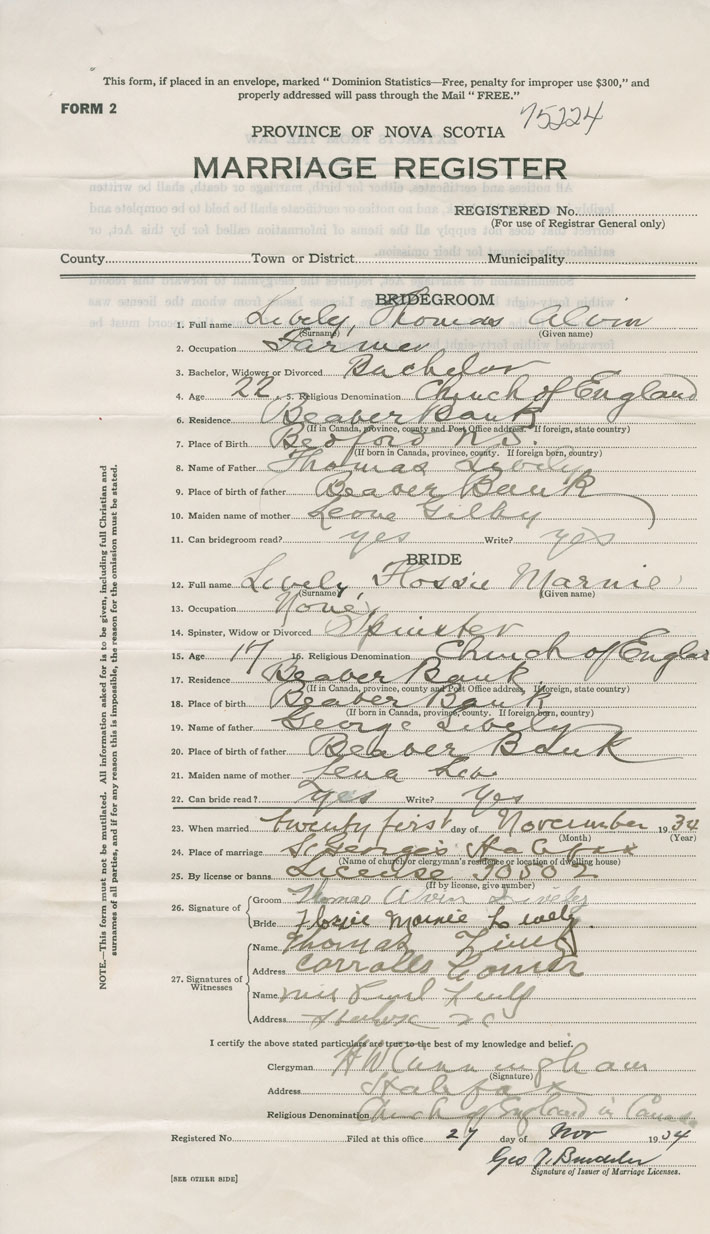 This form, if placed in an envelope, marked " Dominion Statistics—Free, penalty for improper use $300," and
properly addressed will pass through the Mail " FREE."
FORM 2
75224
PROVINCE OF NOVA SCOTIA
MARRIAGE REGISTER
REGISTERED No.
(For use of Registrar General only)
County Town or District Municipality
BRIDEGROOM
1. Full name Lively, Thomas Alvin
(Surname) (Given name)
2. Occupation Farmer
3. Bachelor, Widower or Divorced Bachelor
4. Age 22 5. Religious Denomination Church of England
6. Residence Beaver Bank
(If in Canada, province, county and Post Office address. If foreign, state country)
7. Place of Birth Bedford N.S.
(If born in Canada, province, county. If foreign born, country)
8. Name of Father Thomas Lively
9. Place of birth of father Beaver Bank
10. Maiden name of mother Leone Gilby
11. Can bridegroom read? yes Write? yes
BRIDE
12. Full name Lively, Flossie Marnie
(Surname) (Given name)
13. Occupation None
14. Spinster, Widow or Divorced Spinster
15. Age 17 16. Religious Denomination Church of Englan
17. Residence Beaver Bank
(If in Canada, province, county and Post Office address, If foreign, state country)
18. Place of birth Beaver Bank
(If born in Canada, province, county. If foreign born, country)
19. Name of father George Lively
20. Place of birth of father Beaver Bank
21. Maiden name of mother Lena
22. Can bride read? Yes Write? Yes
23. When married twenty first day of November 1934
(Month) (Year)
24. Place of marriage St George's Halifax
(Name of church or clergyman's residence or location of dwelling house)
25. By license or banns License 30502
(If by license, give number)
26. Signature of Groom Thomas Alvin Lively
Bride Flossie Marnie Lively
27. Signatures of Witnesses
Name Thomas
Address Carrolls Corner
Name
Address
I certify the above stated particulars are true to the best of my knowledge and belief.
Clergyman H W Cunningham
(Signature)
Address Halifax
Religious Denomination Church of England in Canada
Registered No. Filed at this office 27 day of Nov 1934
Geo
Signature of Issuer of Marriage Licenses.
[SEE OTHER SIDE]
NOTE.—This form must not be mutilated. All information asked for is to be given, including full Christian and
surnames of all parties, and if for any reason this is impossible, the reason for the omission must be stated.